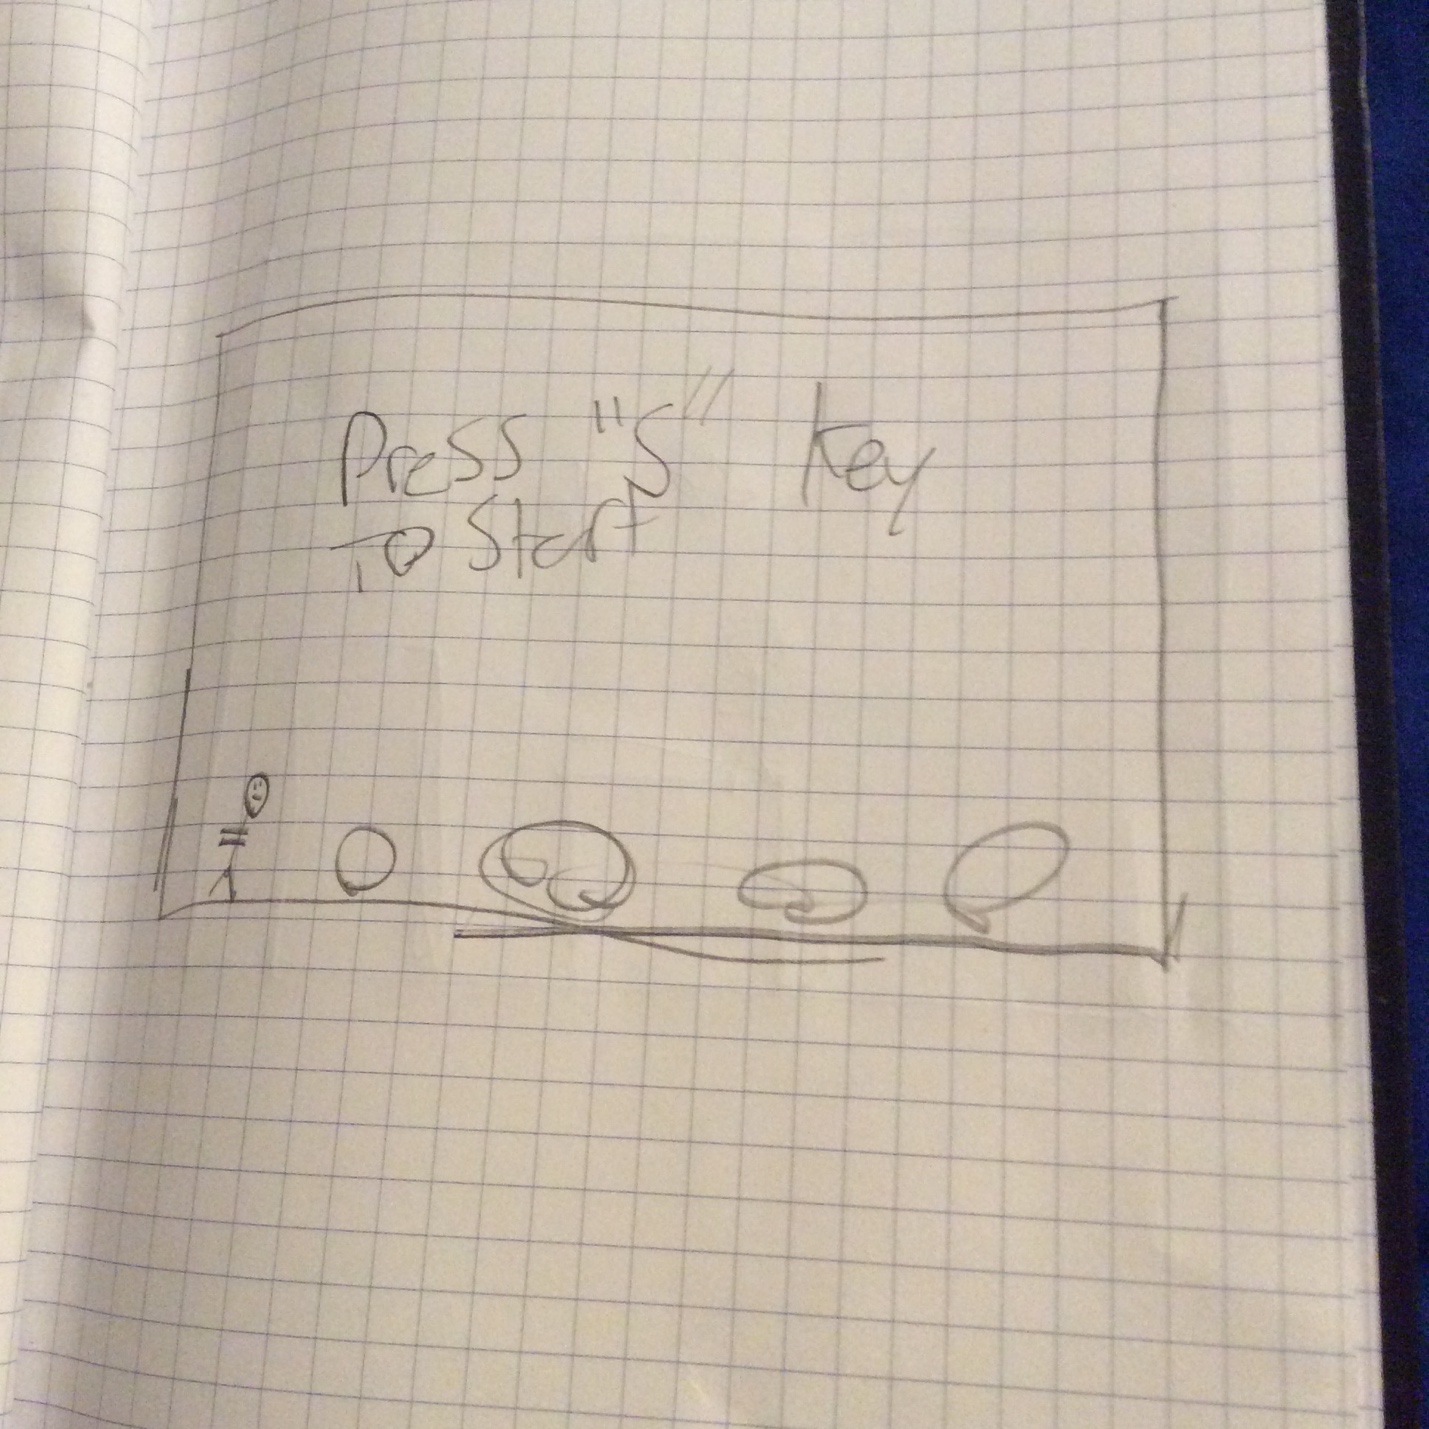 Press "S" Key
To Start